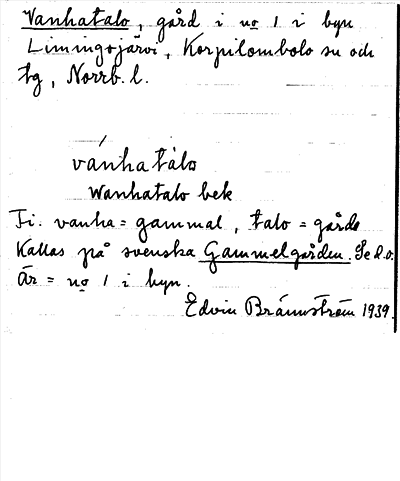 Vanhatalo, gård i no 1 i byn
Limingojärvi, Korpilombolo sn och
tg, Norrb. l.
vánhatàlo
Wanhatalo bek
Fi. vanha = gammal, talo = gård.
Kallas på svenska Gammelgården. Se d.o.
Är = no 1 i byn.
Edvin Brännström 1939.